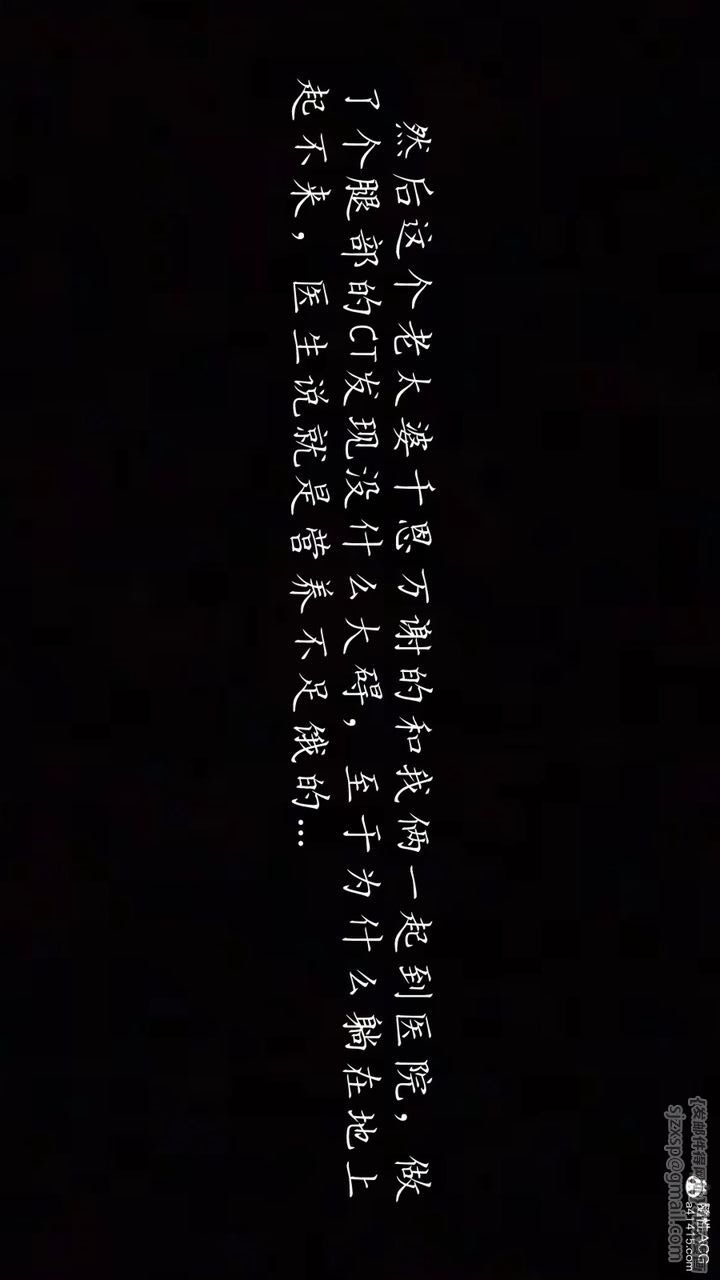 然后这个老太婆千恩万谢的和我俩一起到医院，做
了个腿部的CT发现没什么大碍，至于为什么躺在地上
起不来，医生说就是营养不足饿的...
sjzxsp@gmail.com
a41415.com